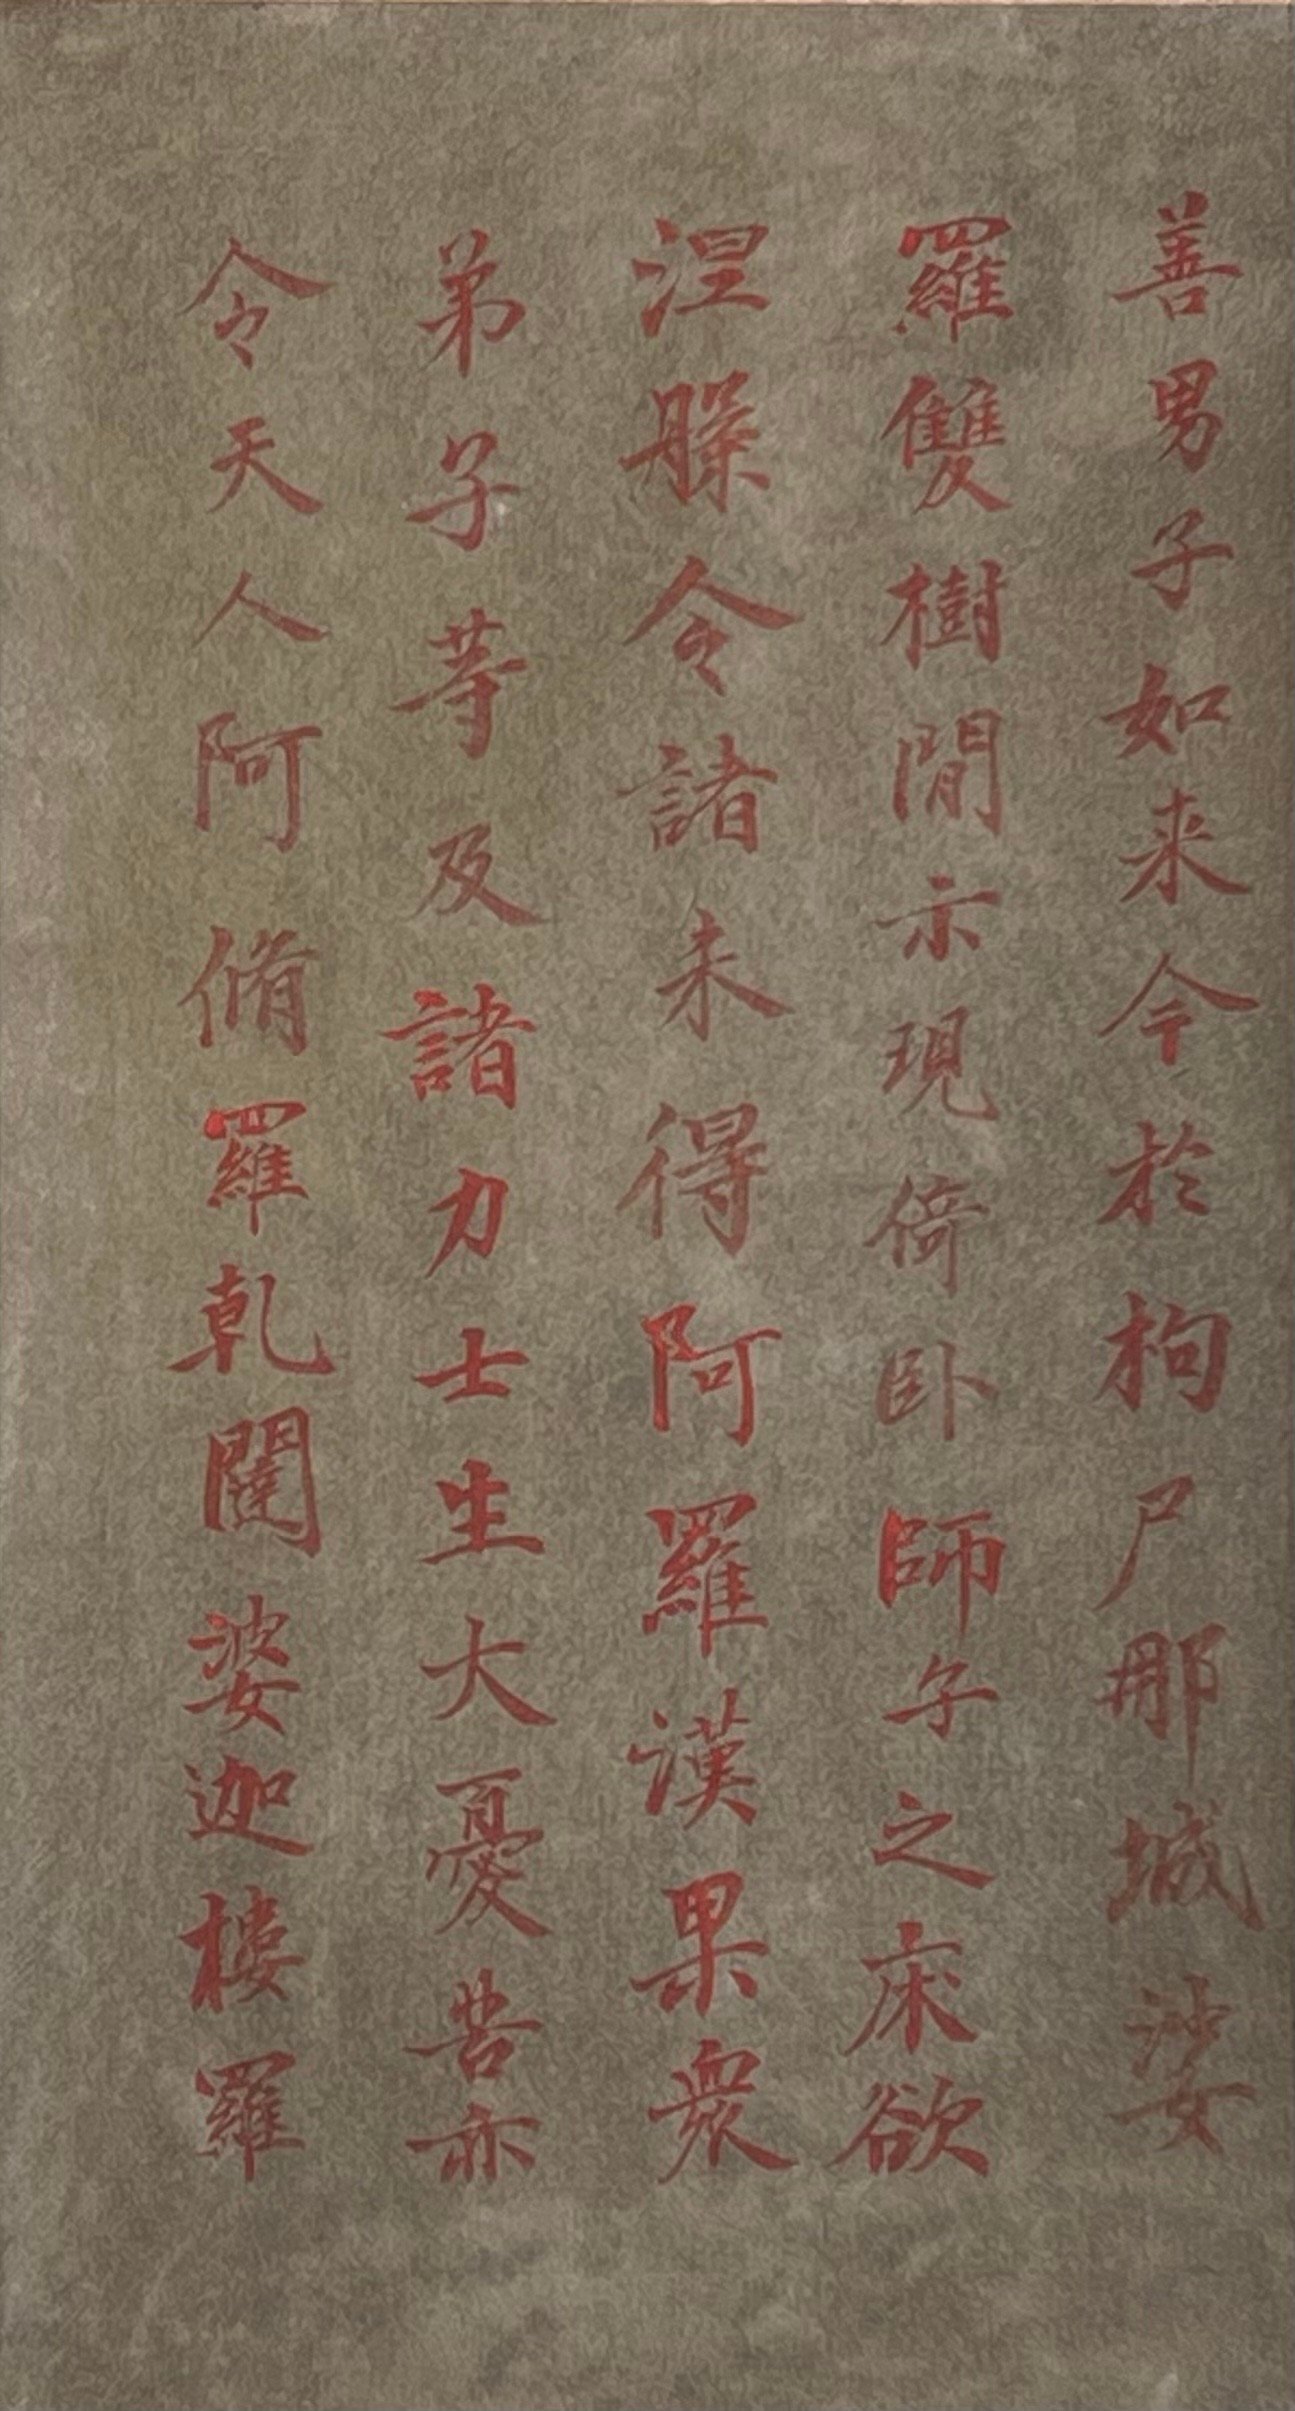 善男子如来今於拘尸那城娑
羅雙樹間示現倚卧師子之床欲
涅槃令諸未得阿羅漢果衆
弟子等及諸力士生大憂苦亦
令天人阿脩羅乾闥婆迦樓羅